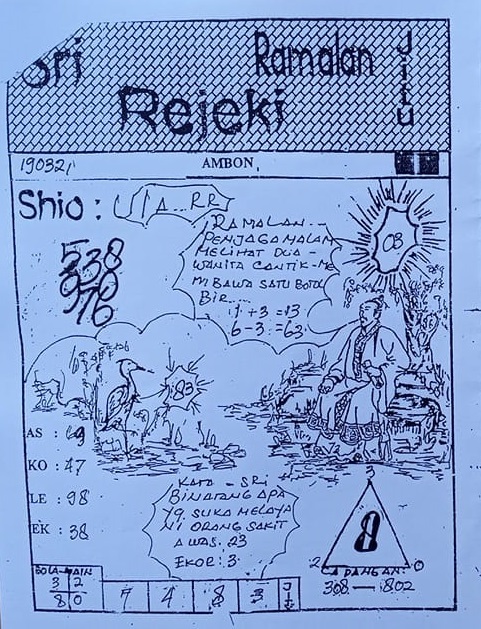 Sri
Ramalan
Jitu
Rejeki
190321
AMBON,
Shio :
RAMALAN..
PENJAGA MALAM
MELIHAT DUA -
WANITA CANTIK-ME
MBAWA SATU BOTOL
BIR...
1 + 3 = 13
6 - 3 = 63
08
538
976
83
AS :
KO : 47
LE : 98
EK : 38
KATA - SRI
BINATANG APA
YG SUKA MELAYA
NI ORANG SAKIT
AWAS. 23
EKOR : 3
3
8
2
0
CADANGAN:
308 — 802
BOLA-MAIN
3 2
8 0
7 4 8 3